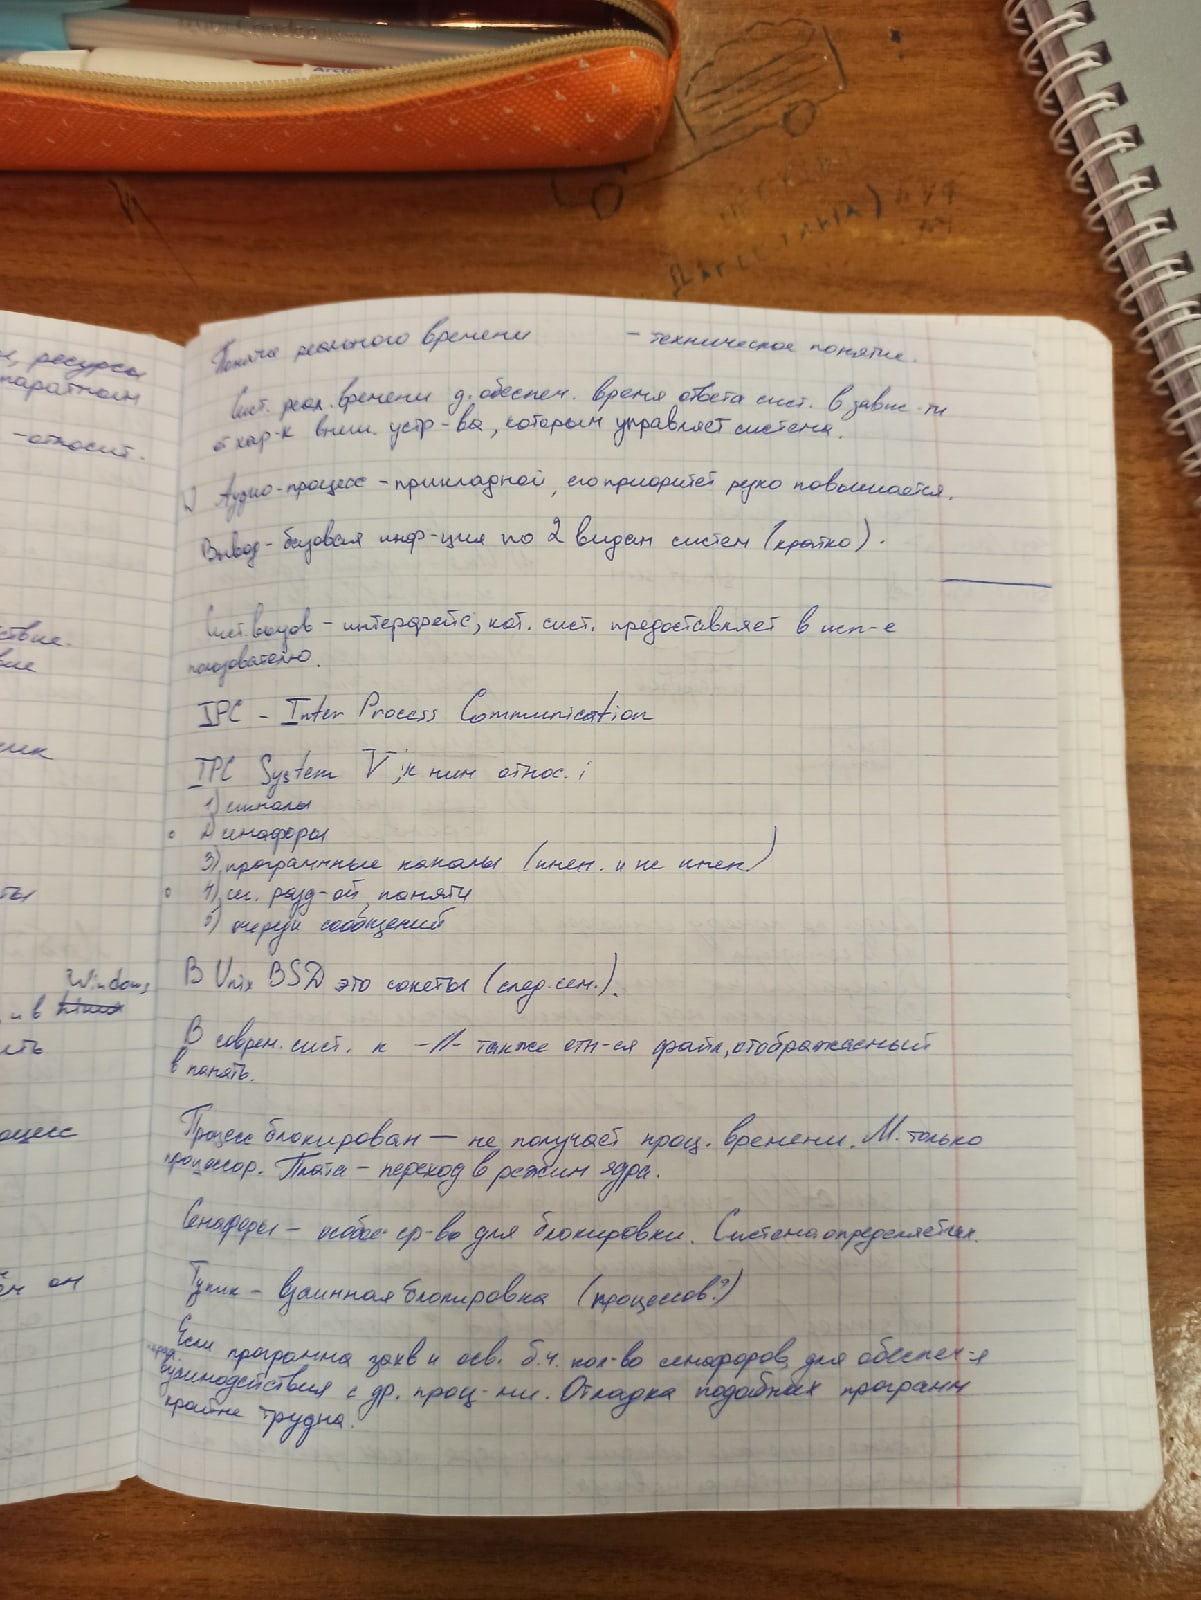 ресурсы
-относит.
Windows,
и в
он
реального времени - техническое понятие.
Сист. реал. времени д. обеспеч. время ответа сист. в завис-ти
от хар-к внеш. устр-ва, которым управляет система.
Аудио-процесс - прикладной, его приоритет резко повышается.
Вывод - базовая инф-ция по 2 видам систем (кратко).
Сист. вызов - интерфейс, кот. сист. предоставляет в исп-е
пользователю.
IPC - Inter Process Communication
IPC System V; к ним относ.:
1) сигналы
2) семафоры
3) программные каналы (имен. и не имен.)
4) сег. разд-ой памяти
5) очереди сообщений
В Unix BSD это сокеты (след. сем.).
В соврем. сист. к -//- также отн-ся файл, отображаемый
в память.
Процесс блокирован — не получает проц. времени. М. только
процессор. Плата - переход в режим ядра.
Семафоры - особое ср-во для блокировки. Система определяет их.
Тупик - взаимная блокировка (процессов?)
Если программа захв и осв. б.ч. кол-во семафоров для обеспеч-я
взаимодействия с др. проц-ми. Отладка подобных программ
крайне трудна.